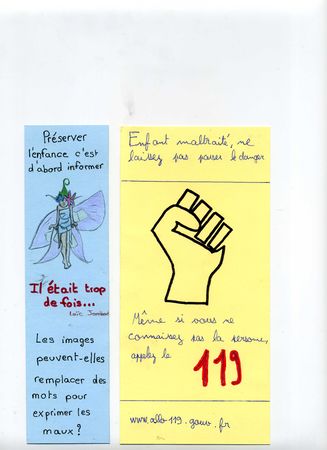 Préserver
l'enfance c'est
d'abord informer
Il était trop
de fois...
Loïc Jambut
Les images
peuvent-elles
remplacer des
mots pour
exprimer les
maux?
Enfant maltraité, ne
laissez pas passer le danger
Même si vous ne
connaissez pas la personne,
appelez le
119
www.allo-119.gouv.fr